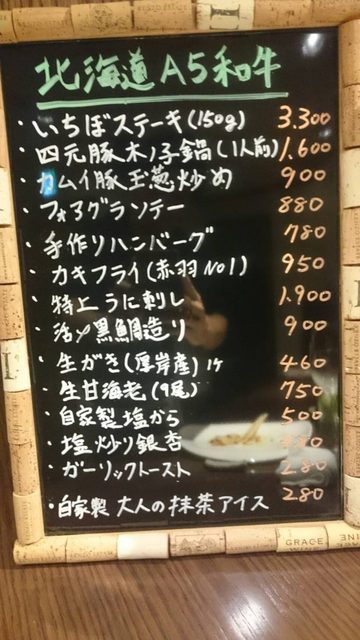 北海道A5和牛
・いちばステーキ(150g) 3.300
・四元豚木ノ子鍋(1人前) 1.600
・カムイ豚玉葱炒め 900
・フォアグランテー 880
・手作りハンバーグ 780
・カキフライ(赤羽No1) 950
・特上うに刺し 1.900
・活〆黒鯛造り 900
・生がき(厚岸産)1ヶ 460
・生甘海老(9尾) 750
・自家製塩から 500
・塩炒り銀杏
・ガーリックトースト 280
・自家製 大人の抹茶アイス 280
GRACE